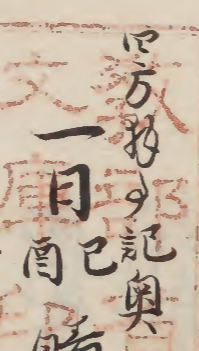 四方拜事記奥
一日己酉晴